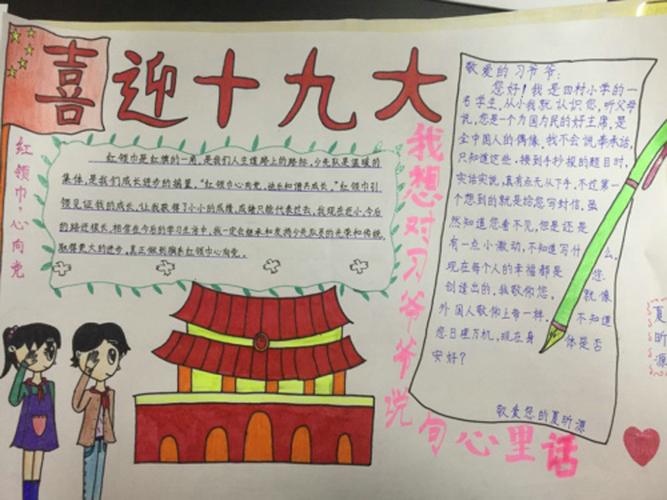 喜迎十九大
红领巾·心向党
红领巾是红旗的一角,是我们人生道路上的路标,少先队是温暖的
集体,是我们成长进步的摇篮,“红领巾心向党,
红领巾引
领见证我的成长,让我取得了小小的成绩,成绩只能代表过去,我现在还小,今后
的路还很长,相信在今后的学习生活中,我一定会继承和发扬少先队员的光荣和传统,
取得更大的进步,真正做到胸系红领巾心向党。
我想对习爷爷说句心里话
敬爱的习爷爷:
您好!我是四村小学的一
名学生,从小我就认识您,听父母
说,您是一个为国为民的好主席,是
全中国人的偶像,我不会说奉承话,
只知道这些,接到手抄报的题目时,
实话实说,真有点无从下手,不过第一
个想到的就是给您写封信,虽
然知道您看不见,但是还是
有一点小激动,不知道写什么,
现在每个人的幸福都是您
创造出的,我敬仰您,就像
外国人敬仰上帝一样。不知道
您日理万机,现在身体是否
安好?
敬爱您的夏昕源
夏
昕
源